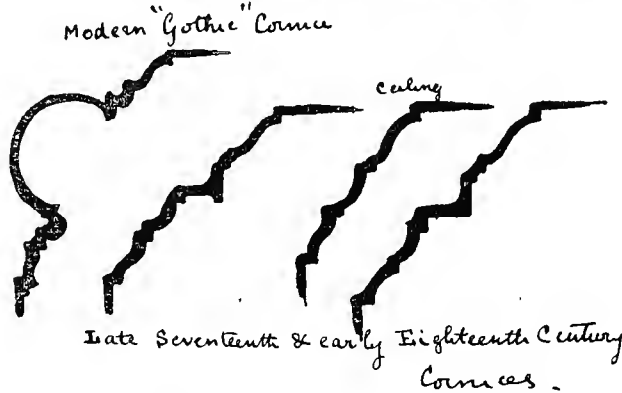 Modern "Gothic" Cornice
Ceiling
Late Seventeenth & early Eighteenth Century
Cornices.